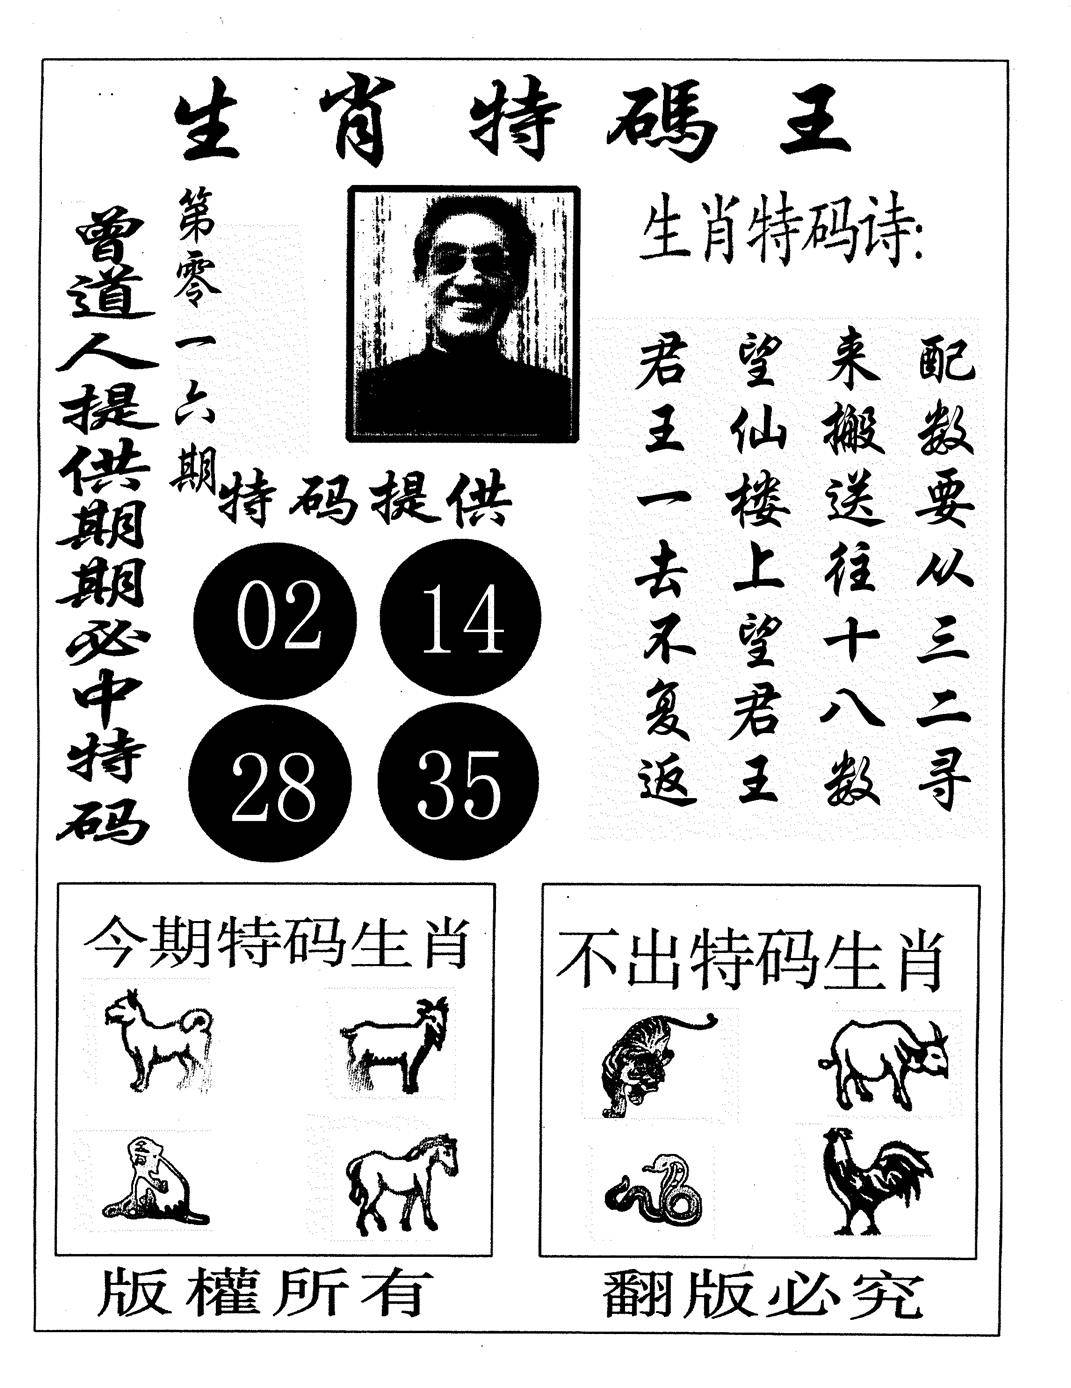 生肖特碼王
曾道人提供期期必中特码
第零一六期
生肖特码诗:
君王一去不复返
望仙楼上望君王
来搬送往十八数
配数要从三二寻
特码提供
02 14
28 35
今期特码生肖
不出特码生肖
版權所有
翻版必究